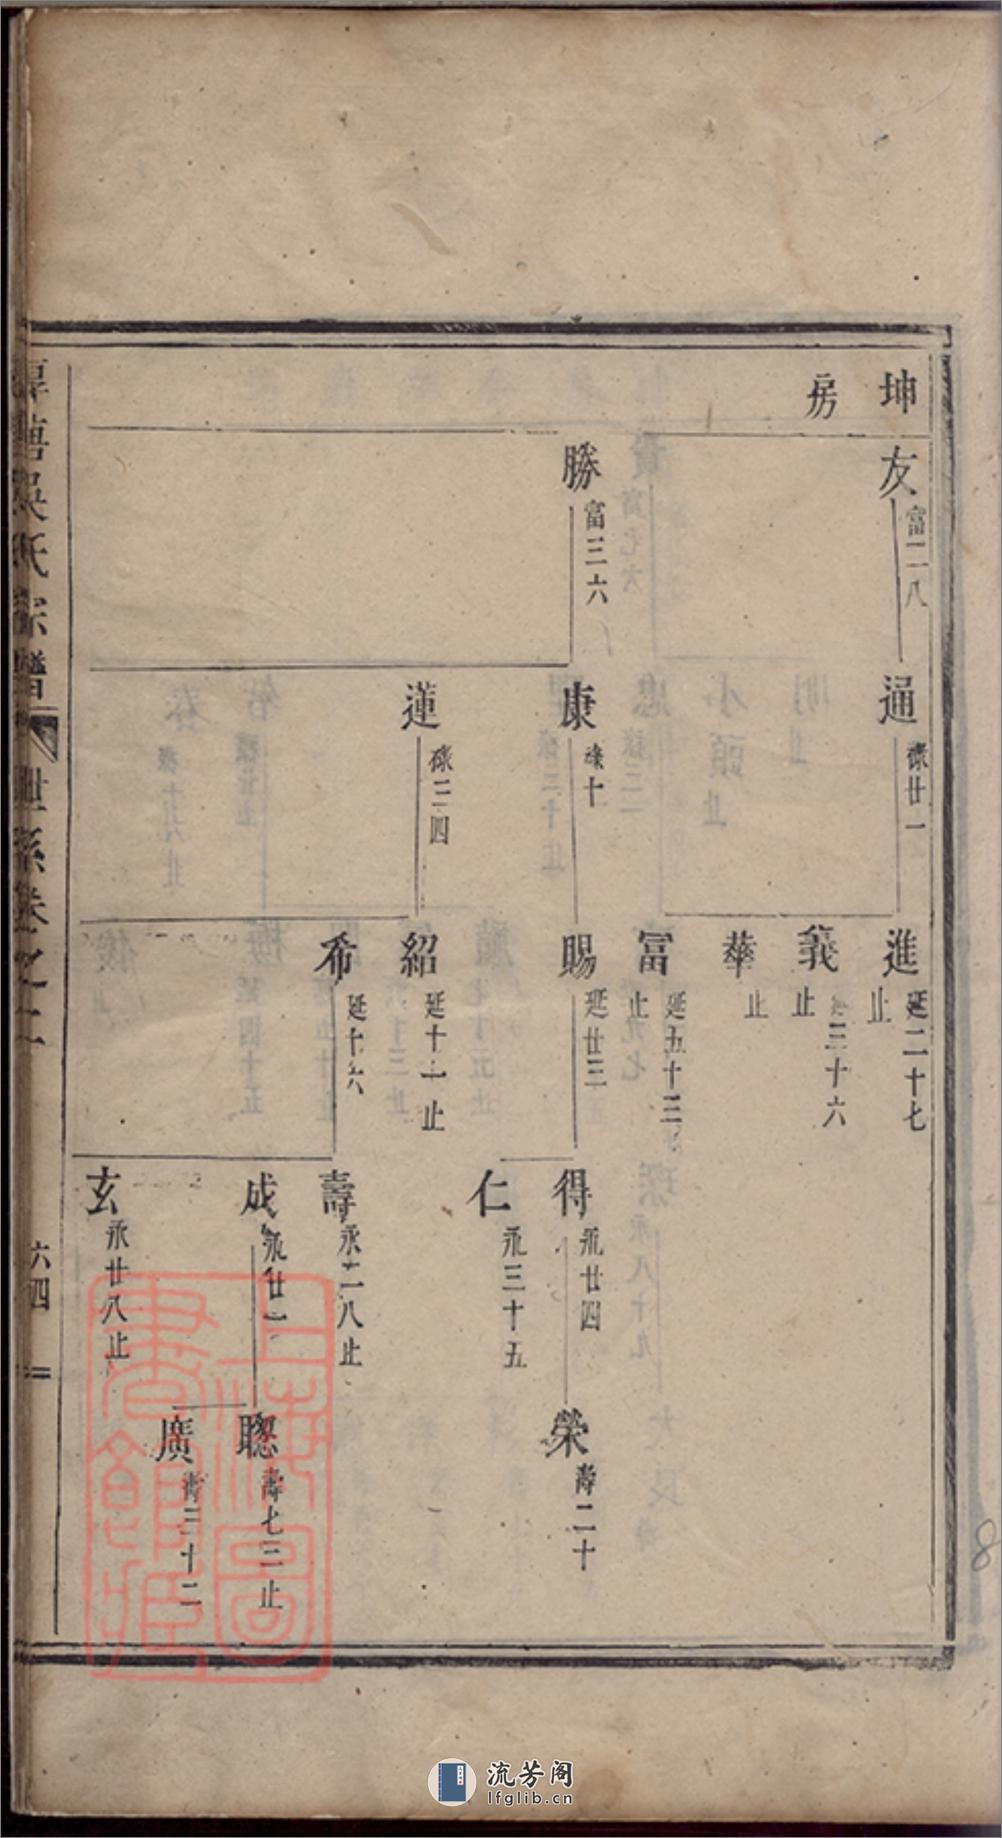 坤
房
友 富二八
勝 富三六
通 祿廿一
康 祿十
蓮 祿三四
進 延二十七 止
義 延三十六 止
華 止
富 延五十三 止
賜 延廿三
紹 延十一止
希 延十六
得 永廿四
仁 永三十五
壽 永二八止
成 永廿一
玄 永廿八止
榮 壽二十
聰 壽七三止
廣 壽三十二
吳氏宗譜
世系卷之二
六四
上海圖書館藏
流芳阁
lfglib.cn
8